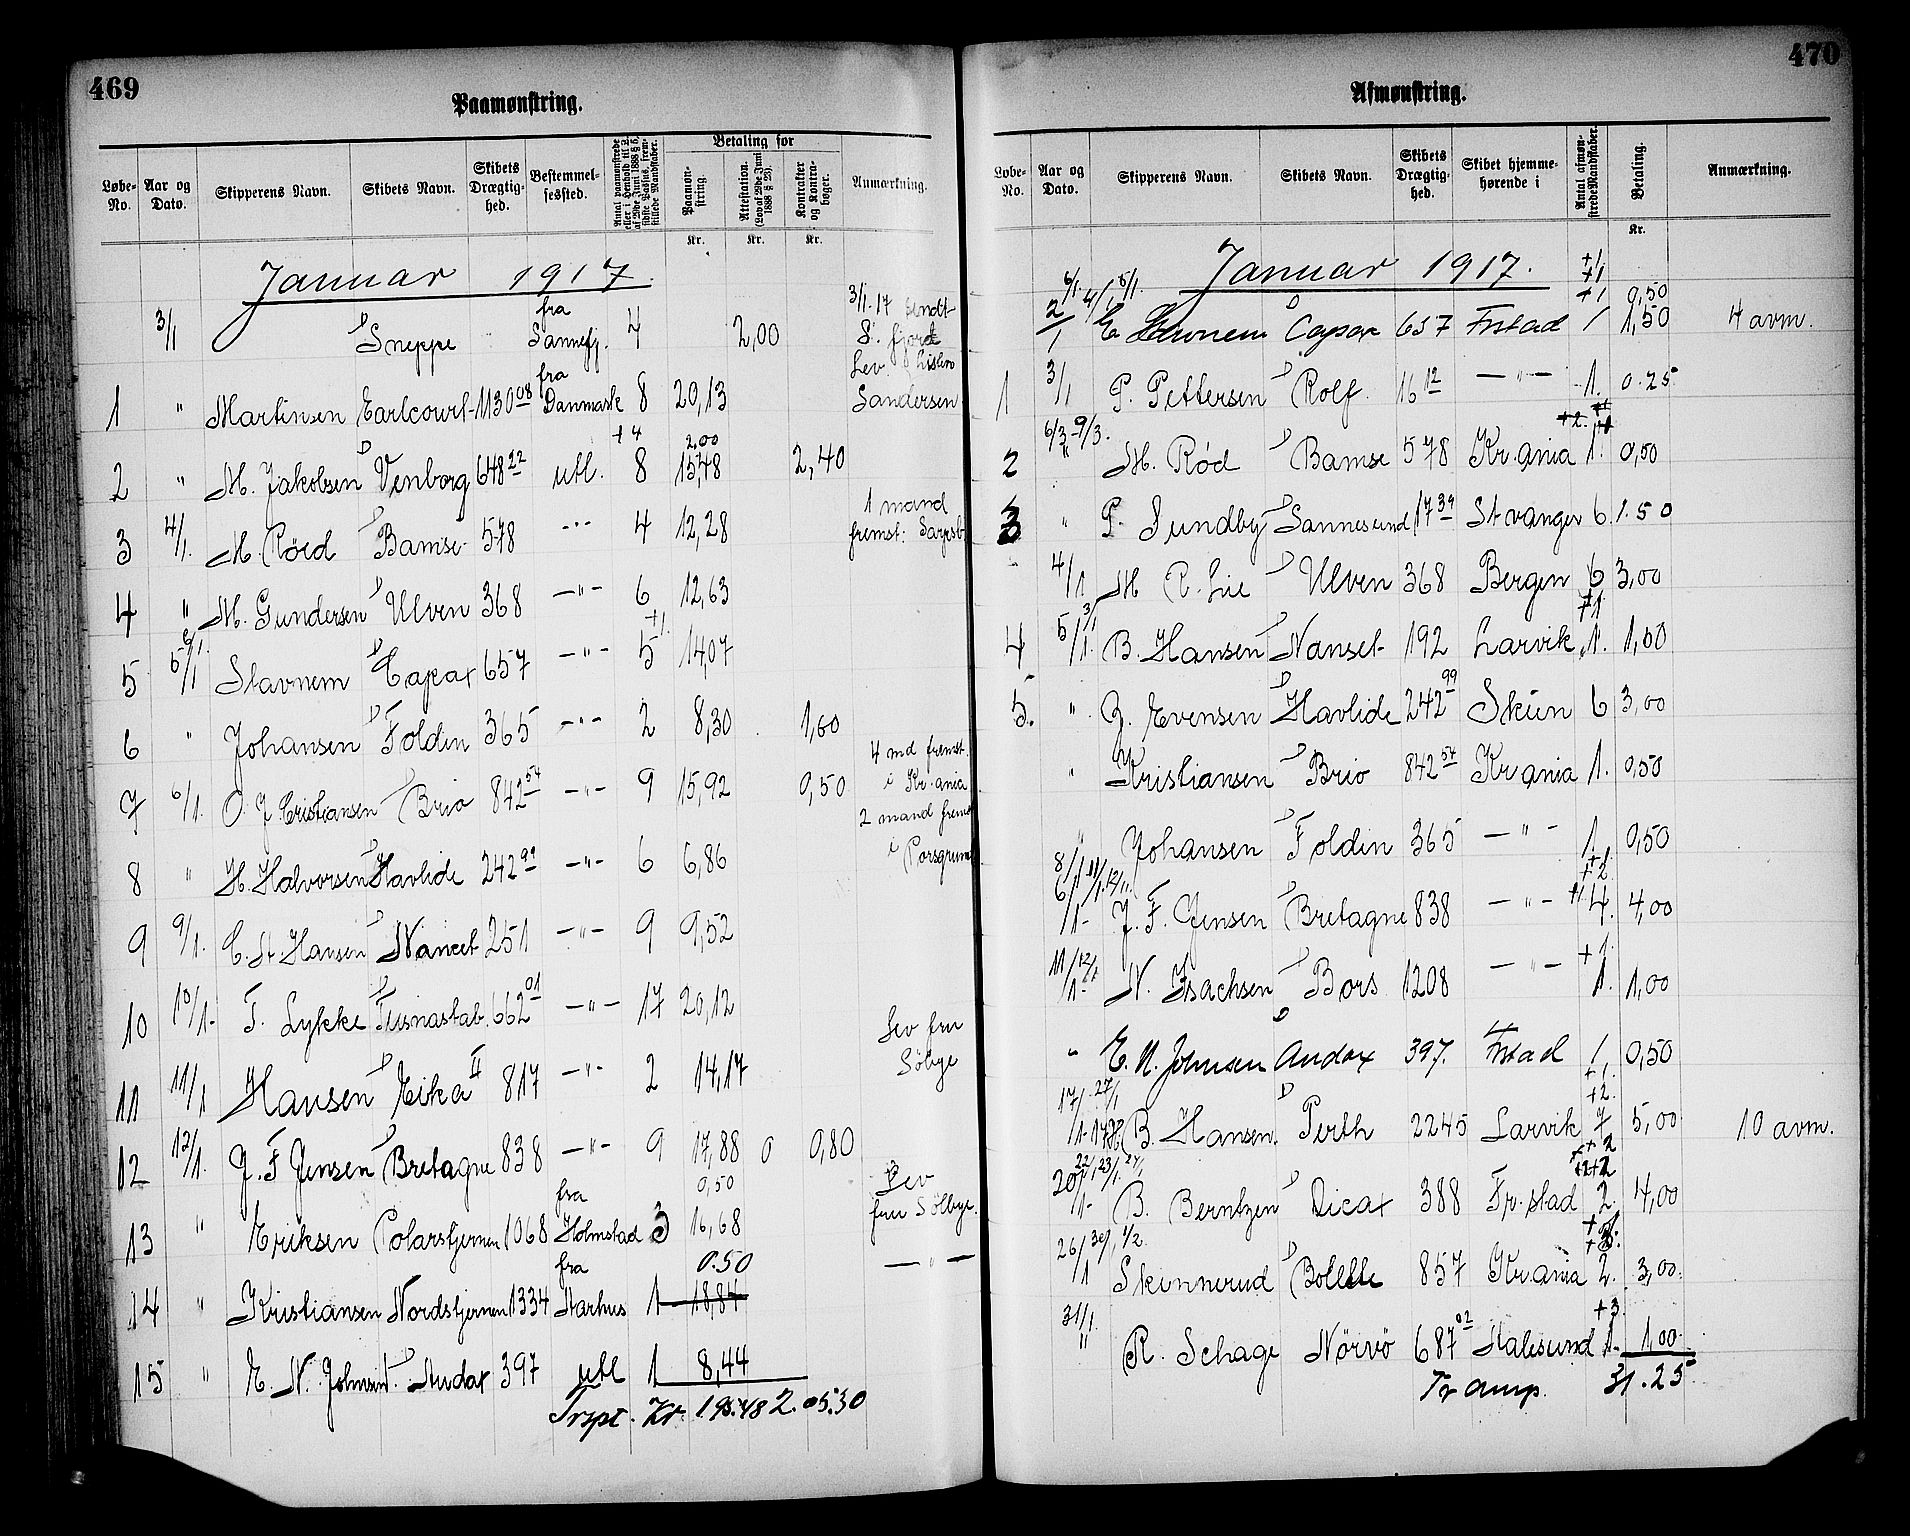 469
Paamønstring.
Løbe-No. Aar og Dato. Skipperens Navn. Skibets Navn. Skibets Drægtighed. Bestemmelsessted. Betaling for Paamønstring. Attestation. (Lov af 29de Juni 1888 § 23). Kontrakter og Kontrabøger. Anmærkning.
Kr. Kr. Kr.
Januar 1917.
3/1 Sneppe fra Sannefj. 4 2,00 3/1-17 sendt S. fjord
1 " Martinsen Earlcourt 1130 08 fra Danmark 8 20,13 Lev. Sandersen
2 " M. Jakobsen Venborg 648 22 utl. +4 8 2.00 15,48 2,40
3 4/1. M. Röed Bamse 578 -"- 4 12,28 1 mand fremst: Sarpsb
4 " M. Gundersen Ulven 368 -"- 6 12,63
5 5/1 6/1. Stavnem Capax 657 -"- +1. 5 14,07
6 " Johansen Foldin 365 -"- 2 8,30 1,60
7 6/1. O. J. Cristiansen Brio 842 54 -"- 9 15,92 0,50 4 md fremst. i Kr.ania
8 " H. Halvorsen Havlide 242 99 -"- 6 6,86 2 mand fremst i Porsgrund
9 9/1. C. St. Hansen Nanset 251 -"- 9 9,52
10 10/1- T. Lykke Fusnastab. 662 01 -"- 17 20,12
11 11/1 Hansen Eika II 817 -"- 2 14,17 Lev fru Sölbye
12 12/1. J. F. Jensen Bretagne 838 -"- 9 17,88 0 0,80
13 " Eriksen Polarstjernen 1068 fra Holmstad 3 0,50 16,68 Lev fru Sölbye.
14 " Kristiansen Nordstjernen 1334 fra Aarhus 1 0.50 18,84 - " -
15 " E. N. Johnsen Audax 397 utl 1 8,44
Trspt. Kr. 198.48 2.00 5.30
470
Afmønstring.
Løbe-No. Aar og Dato. Skipperens Navn. Skibets Navn. Skibets Drægtighed. Skibet hjemmehørende i Antal afmønstrede Mandskaber. Betaling. Anmærkning.
Kr.
Januar 1917.
2/1 6/1. 4/1 8/1. E. Stavnem Capax 657 Frstad +1 +1 +1 1 0,50 1,50 4 avm.
1 3/1 P. Pettersen Rolf 16 12 -"- 1. 0.25
2 6/3-9/3. " M. Röd Bamse 578 Kr.ania +2. +1 1. 0,50
3 " P. Sundby Sannesund 17 39 Stvanger 6. 1.50
4/1 M P. Lie Ulven 368 Bergen 6 3,00
4 5/1. 3/1 B. Hansen Nanset 192 Larvik +1. 1. 1,00
5. " J. Evensen Havlide 242 99 Skien 6 3,00
" Kristiansen Brio 842 54 Kr.ania 1. 0,50
" Johansen Foldin 365 -"- 1. 0,50
6/1- 8/1 11/1. 12/1. J. F. Jensen Bretagne 838 -"- +1 +2 +1 4. 4,00
11/1- 12/1 N. Isachsen Bors 1208 -"- +1. 1. 1,00
" E. N. Johnsen Andax 397. Frstad 1, 0,50
17/1- 27/1 B. Hansen. Perth 2245 Larvik +1. +2. 7 5,00 10 avm.
20/1- 22/1 23/1. 24/1 B. Berntzen Dicax 388 Fr.stad +2 +2+2 2. 4,00
26/1 30/1 1/2. Skinnerud Bolette 857 Kr.ania 2. 3,00.
31/1. " R. Schage Nörvö 687 02 Aalesund +3. 1. 1.00.
31.25